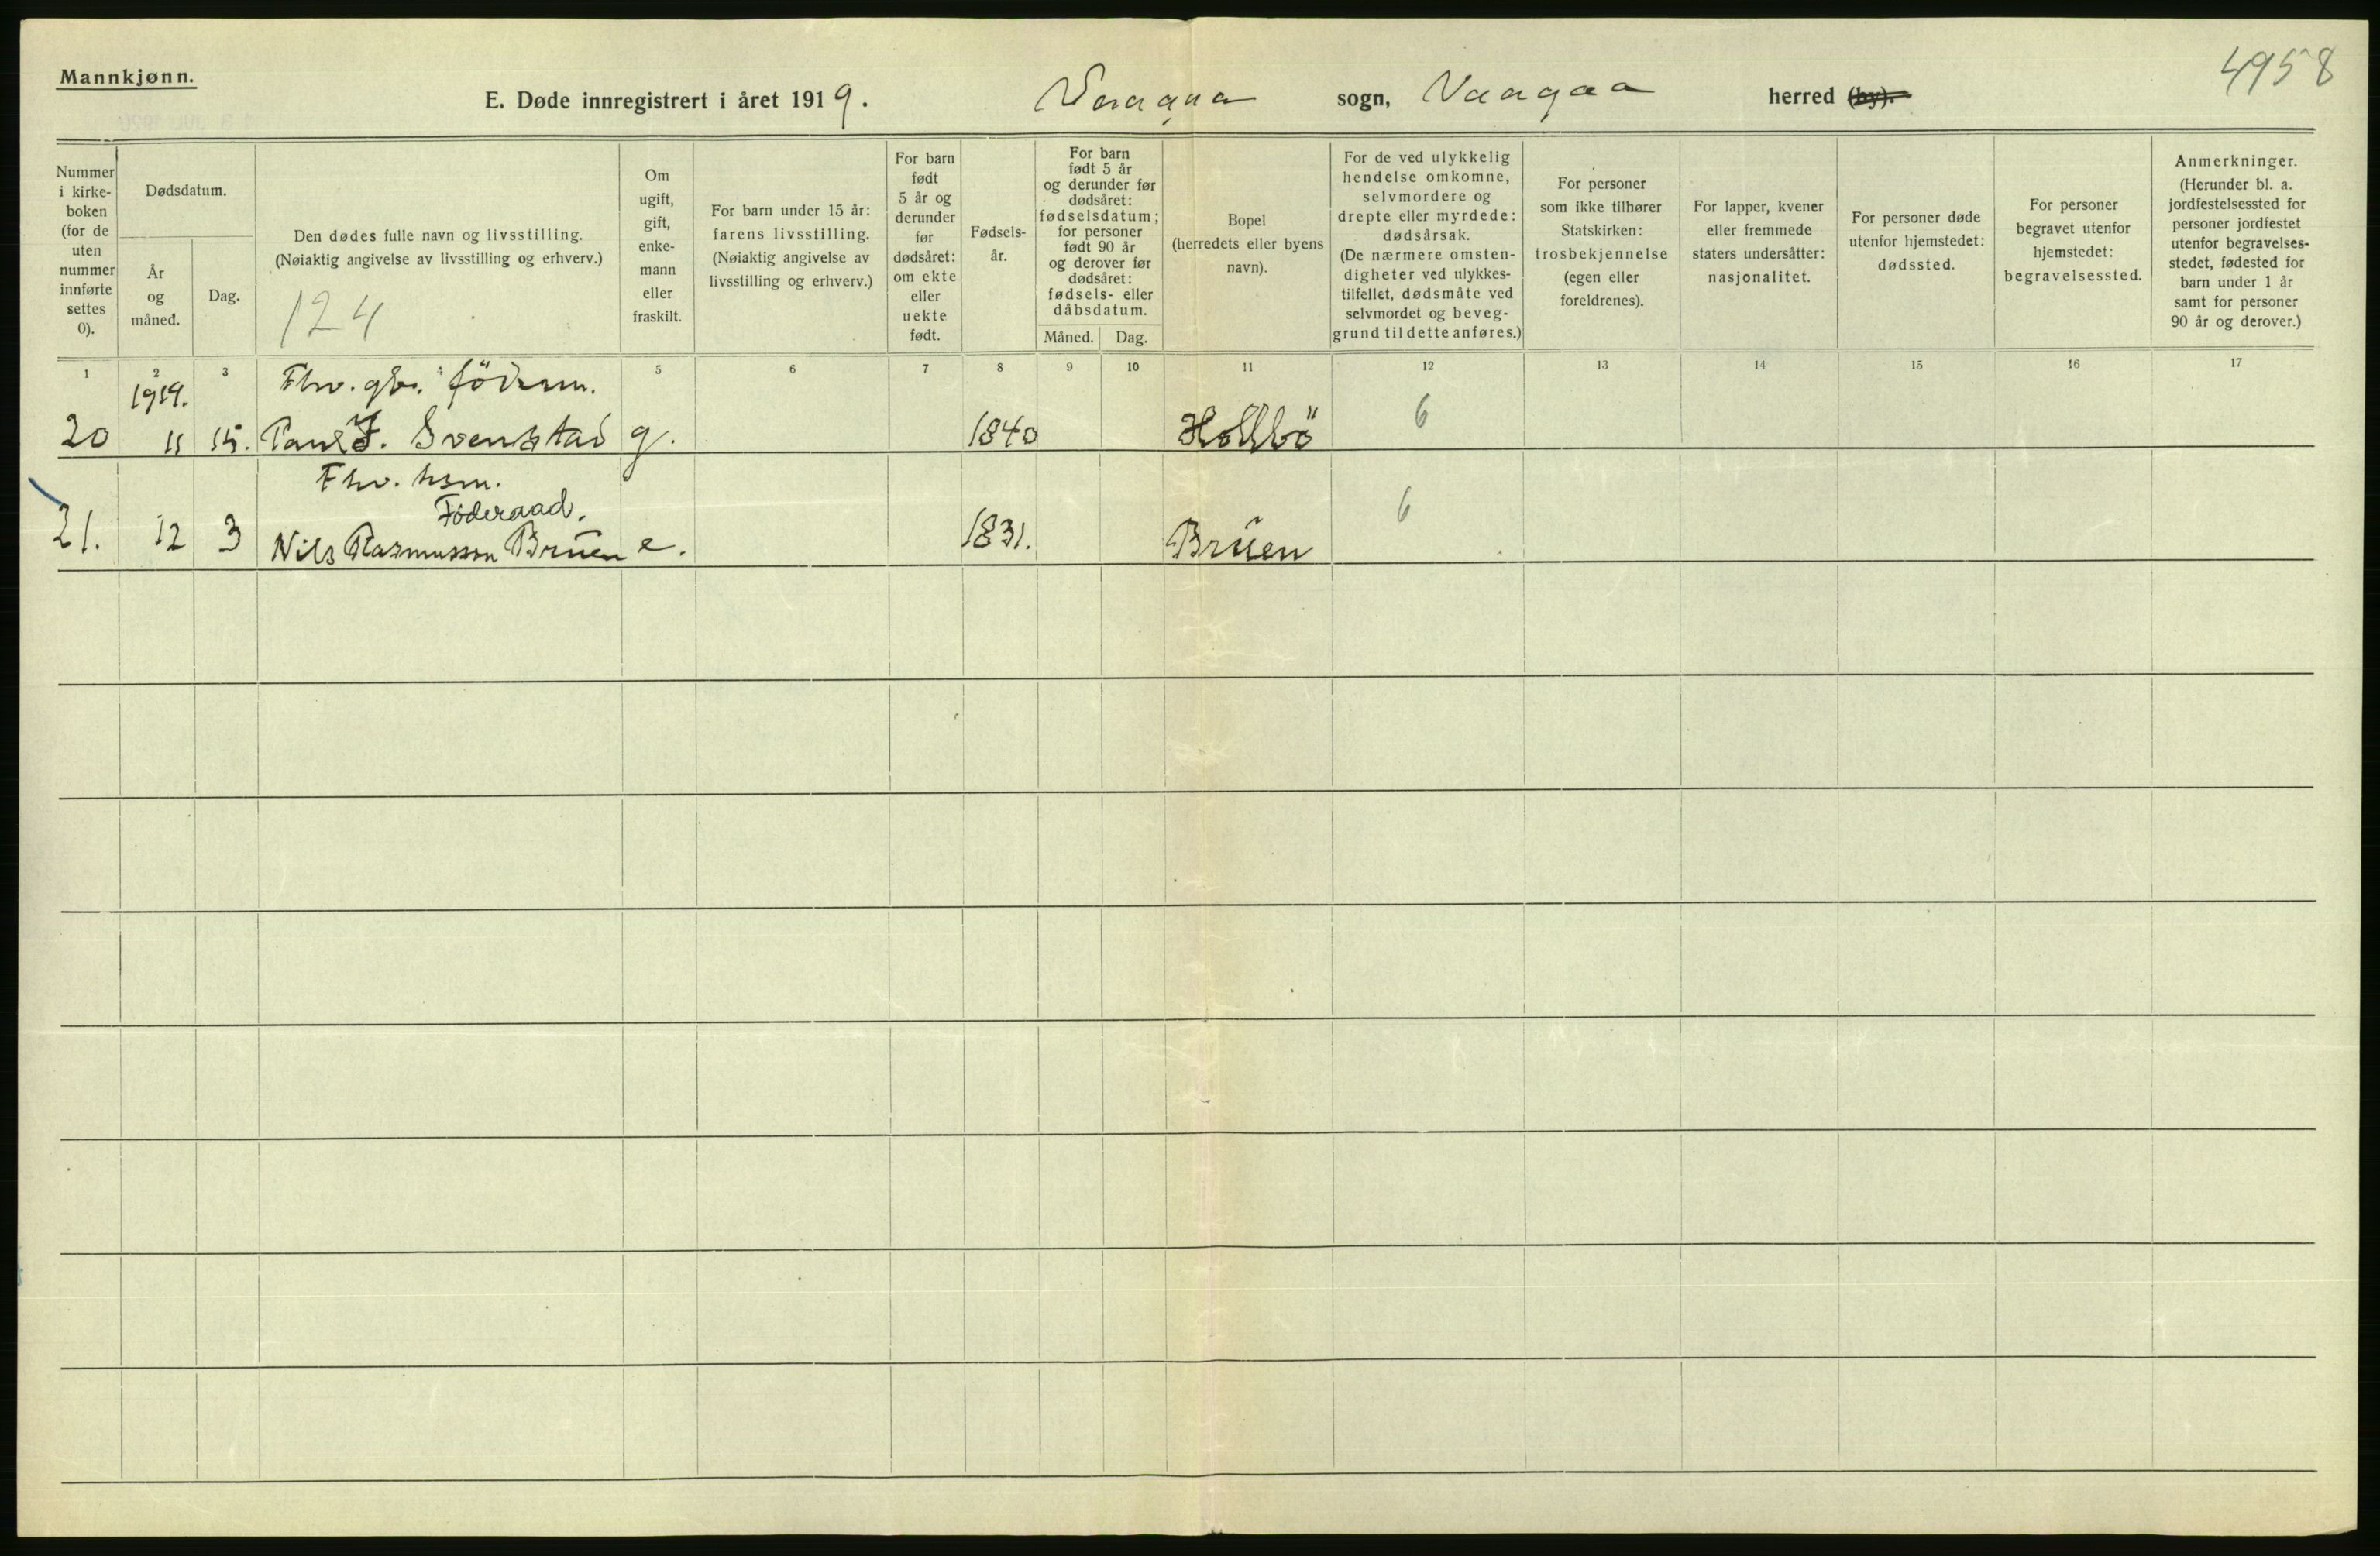 Mannkjønn.
4958
E. Døde innregistrert i året 1919. Vaagaa sogn, Vaagaa herred (by).
Nummer i kirke-boken (for de uten nummer innførte settes 0).
Dødsdatum.
År og måned.
Dag.
Den dødes fulle navn og livsstilling.
(Nøiaktig angivelse av livsstilling og erhverv.)
124
Om ugift, gift, enke-mann eller fraskilt.
For barn under 15 år: farens livsstilling.
(Nøiaktig angivelse av livsstilling og erhverv.)
For barn født 5 år og derunder før dødsåret: om ekte eller uekte født.
Fødsels-år.
For barn født 5 år og derunder før dødsåret: fødselsdatum; for personer født 90 år og derover før dødsåret: fødsels- eller dåbsdatum.
Måned.
Dag.
Bopel (herredets eller byens navn).
For de ved ulykkelig hendelse omkomne, selvmordere og drepte eller myrdede: dødsårsak.
(De nærmere omsten-digheter ved ulykkes-tilfellet, dødsmåte ved selvmordet og beveg-grund til dette anføres.)
For personer som ikke tilhører Statskirken: trosbekjennelse (egen eller foreldrenes).
For lapper, kvener eller fremmede staters undersåtter: nasjonalitet.
For personer døde utenfor hjemstedet: dødssted.
For personer begravet utenfor hjemstedet: begravelsessted.
Anmerkninger.
(Herunder bl. a. jordfestelsessted for personer jordfestet utenfor begravelses-stedet, fødested for barn under 1 år samt for personer 90 år og derover.)
1 2 3 5 6 7 8 9 10 11 12 13 14 15 16 17
1919. Fhv. gbr. föderm.
20 11 15. Paul J. Svenstad g. 1840 Hollbö 6
Fhv. hsm.
Föderaad.
21. 12 3 Nils Rasmusson Brüen e. 1831. Brüen 6